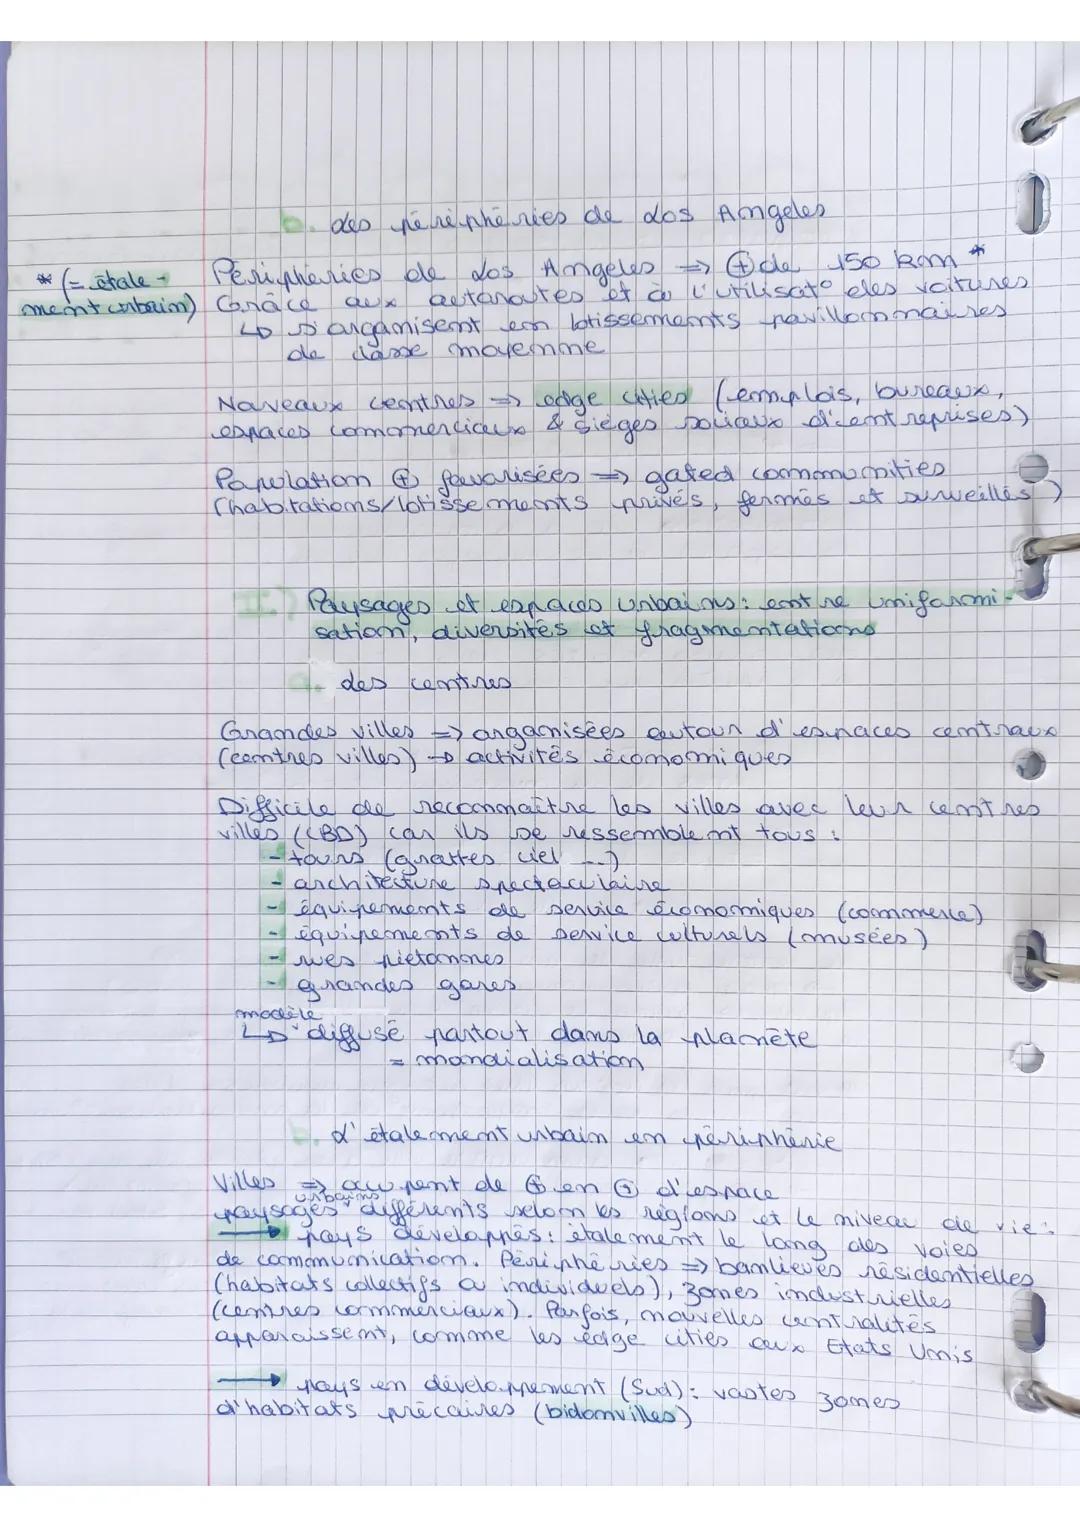 b. Les périphéries de Los Angeles
Périphéries de Los Angeles => ⊕ de 150 km *
* (= étale-
ment urbain)
Grâce aux autoroutes et à l'utilisat° des voitures
↳ s'organisent en lotissements pavillonnaires
de classe moyenne
Nouveaux centres => edge cities (emplois, bureaux,
espaces commerciaux & sièges sociaux d'entreprises)
Population ⊕ favorisées => gated communities
(habitations/lotissements privés, fermés et surveillés)
II.) Paysages et espaces urbains: entre uniformi-
sation, diversités et fragmentations
a. Les centres
Grandes villes => organisées autour d'espaces centraux
(centres villes) → activités économiques
Difficile de reconnaître les villes avec leur centres
villes (CBD) car ils se ressemblent tous :
- tours (grattes ciel ...)
- architecture spectaculaire
- équipements de service économiques (commerce)
- équipements de service culturels (musées)
- rues piétonnes
- grandes gares
modèle
↳ diffusé partout dans la planète
= mondialisation
b. L'étalement urbain en périphérie
Villes => occupent de ⊕ en ⊕ d'espace
urbains
paysages différents selon les régions et le niveau de vie :
→ pays développés: étalement le long des voies
de communication. Périphéries => banlieues résidentielles
(habitats collectifs ou individuels), zones industrielles
(centres commerciaux). Parfois, nouvelles centralités
apparaissent, comme les edge cities aux Etats Unis
→ pays en développement (Sud): vastes zones
d'habitats précaires (bidonvilles)